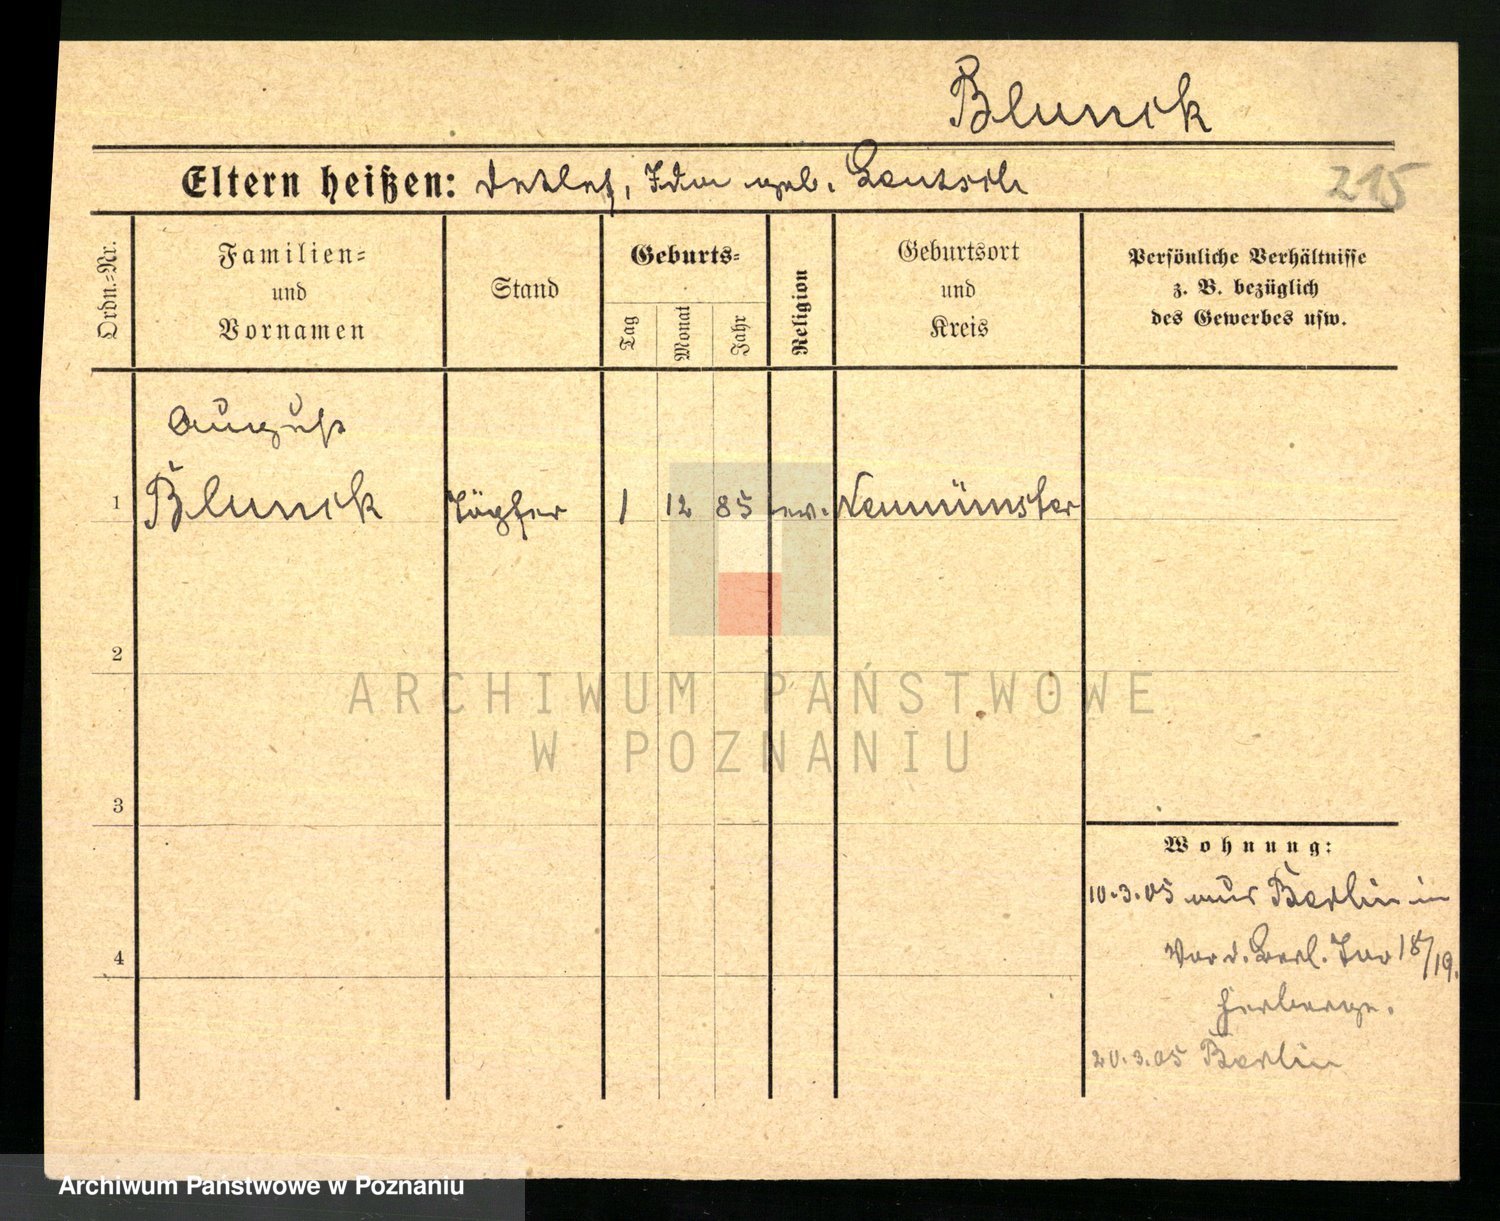 Blunck
Eltern heißen: Detlef, Ida geb.
215
Ordn.=Nr.
Familien=
und
Vornamen
Stand
Geburts=
Tag
Monat
Jahr
Religion
Geburtsort
und
Kreis
Persönliche Verhältnisse
z. B. bezüglich
des Gewerbes usw.
August
1 Blunck Töpfer 1 12 85 ev. Neumünster
2
3
4
ARCHIWUM PAŃSTWOWE
W POZNANIU
Wohnung:
10.3.05 aus Berlin in
Vor d. Berl. Tor 18/19.
Herberge.
20.3.05 Berlin
Archiwum Państwowe w Poznaniu